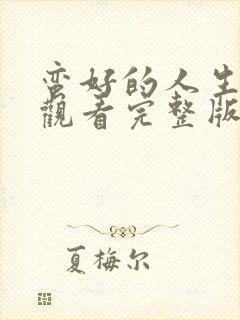 蛮好的人生
觀看完整版
夏梅尔